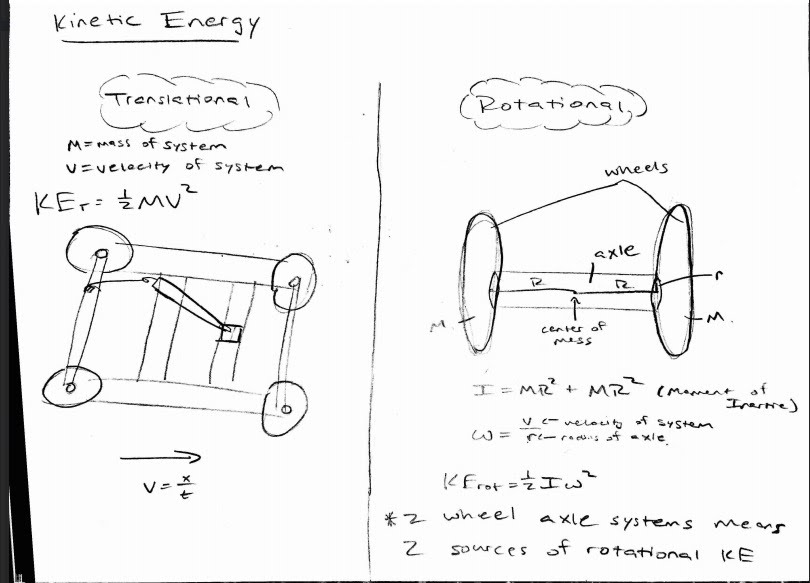 Kinetic Energy
Translational
M = mass of system
V = velocity of system
KE_T = 1/2 MV²
V = x/t
Rotational
wheels
axle
R R
r
M M.
center of
mass
I = MR² + MR² (Moment of
Inertia)
ω = v/r ← velocity of system
← radius of axle.
KE_rot = 1/2 I ω²
* 2 wheel axle systems means
2 sources of rotational KE